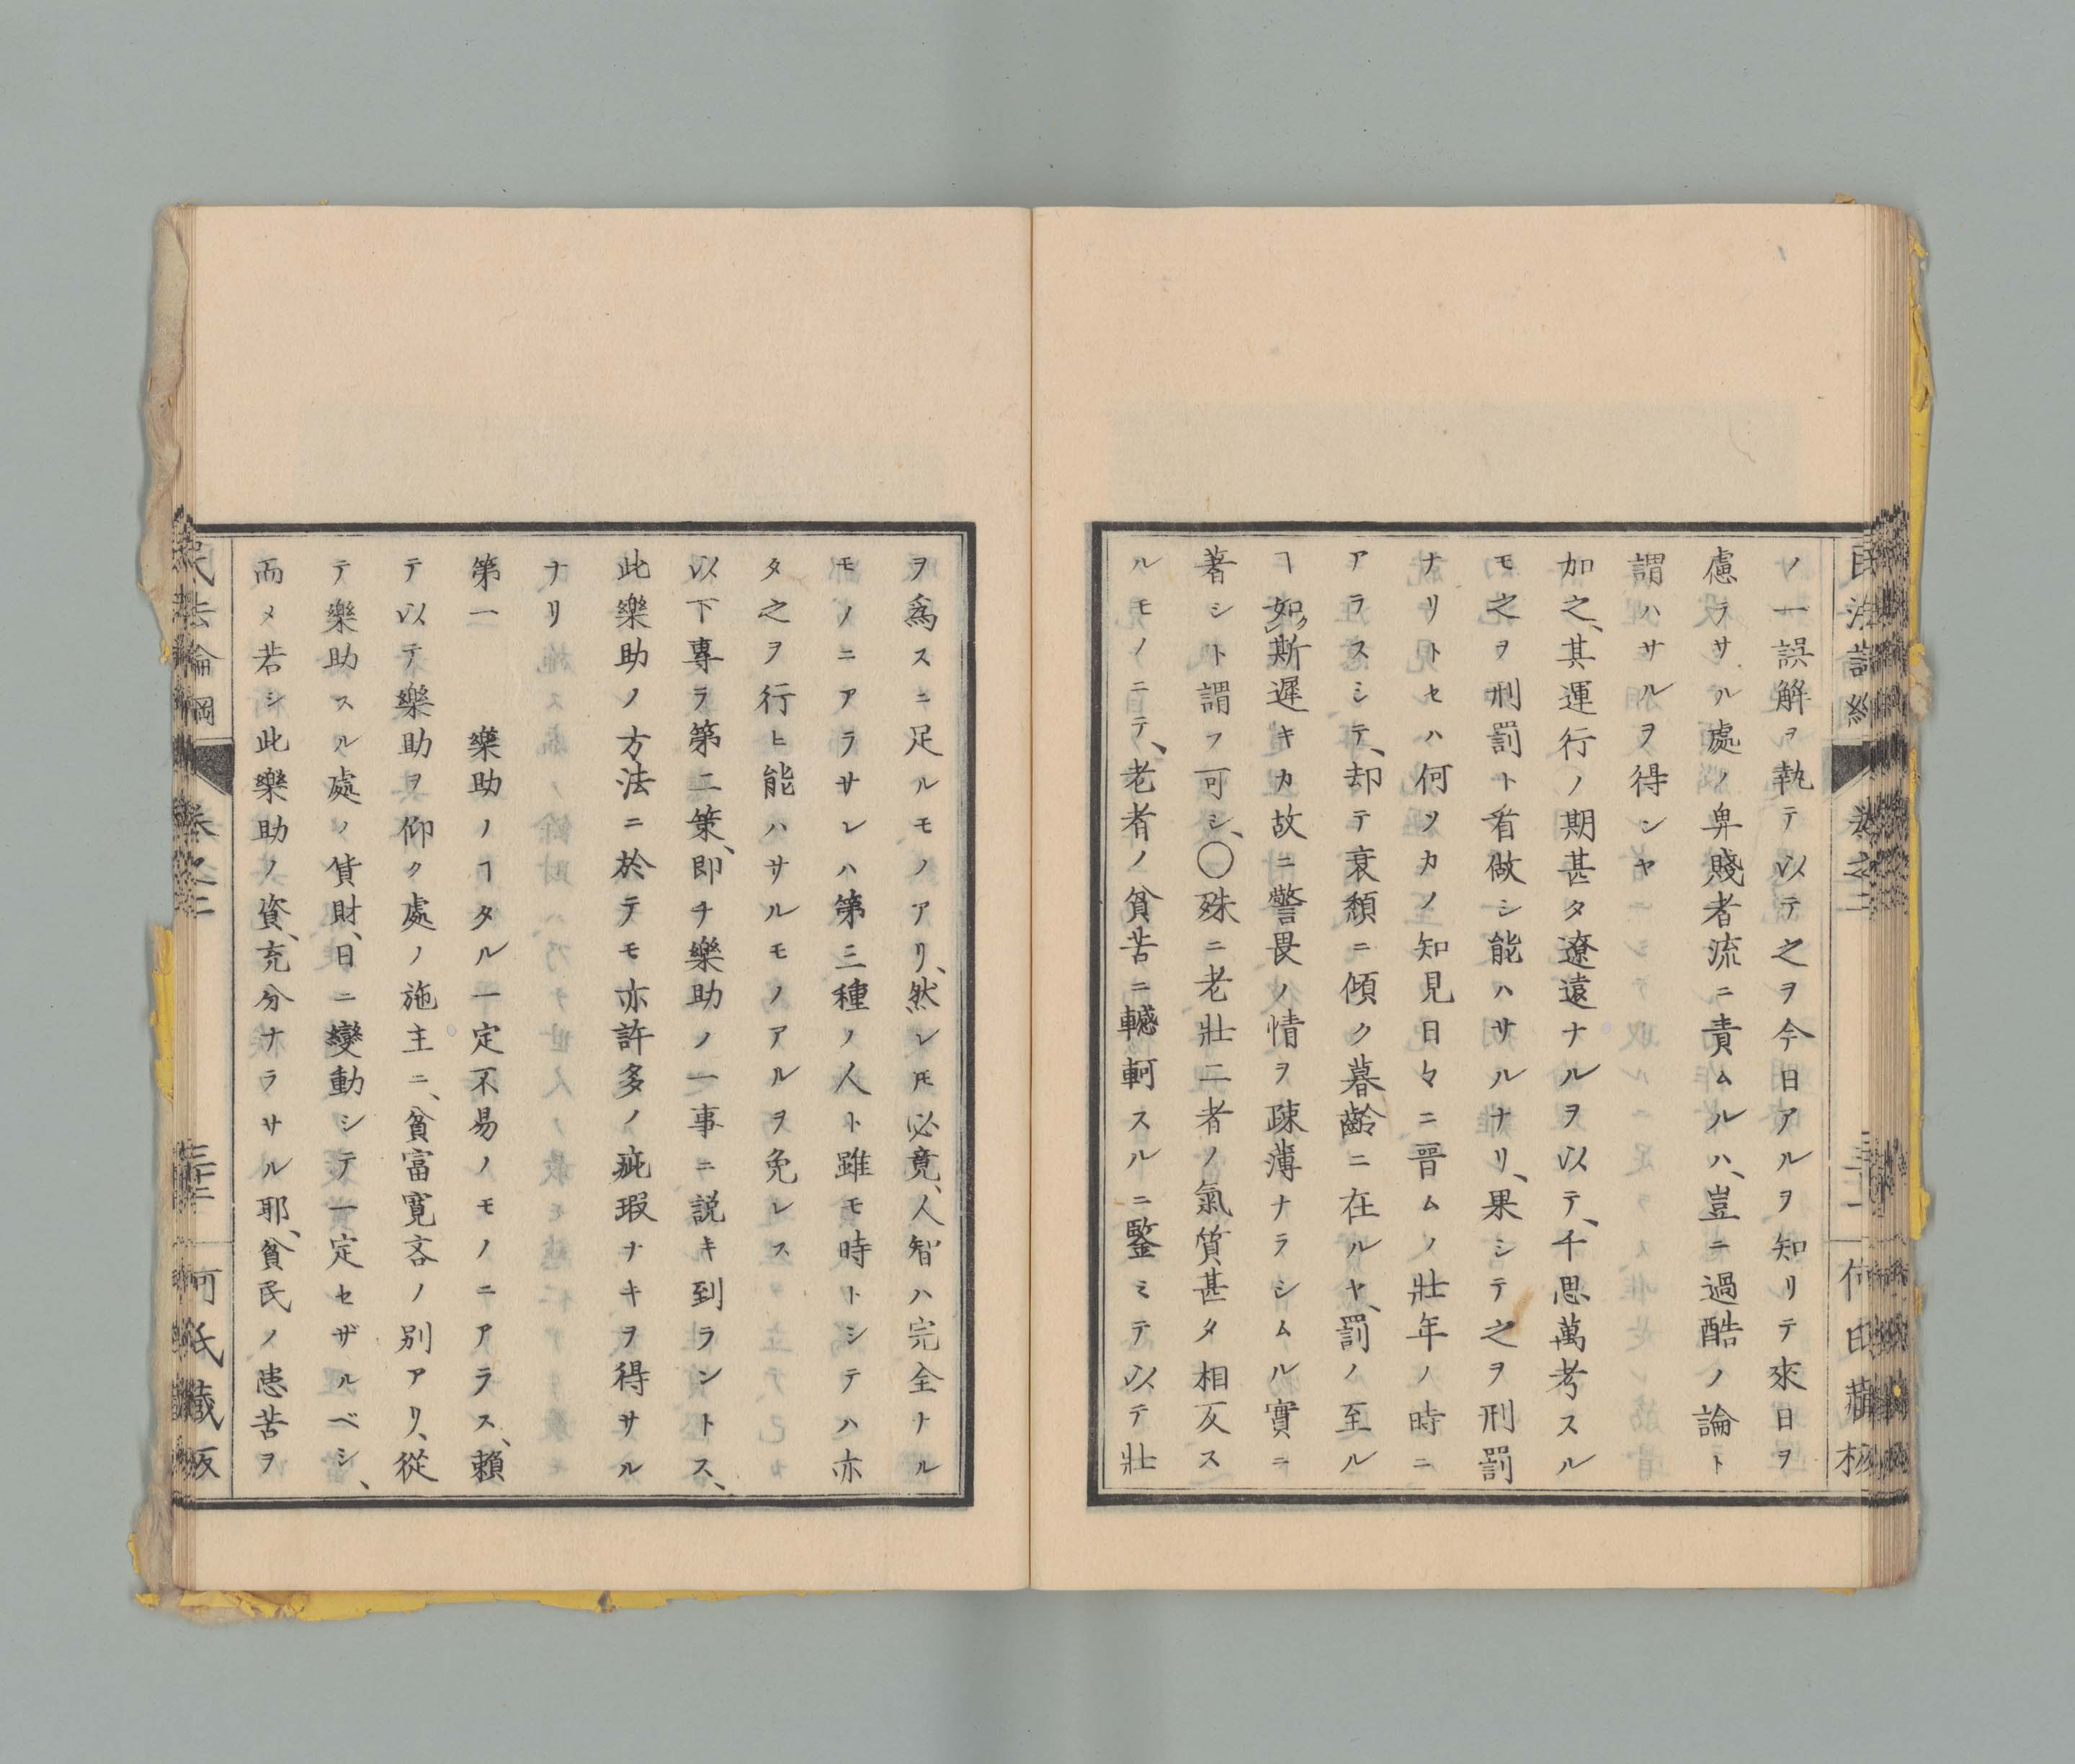 ノ一誤解ヲ執テ以テ之ヲ今日アルヲ知リテ來日ヲ
慮ラサル處ノ卑賤者流ニ責ムルハ、豈ニ過酷ノ論ト
謂ハサルヲ得ンヤ
加之、其運行ノ期甚タ遼遠ナルヲ以テ、千思萬考スル
モ之ヲ刑罰ト看做シ能ハサルナリ、果シテ之ヲ刑罰
ナリトセハ何ソカノ知見日々ニ晋ムノ壯年ノ時ニ
アラスシテ、却テ衰頽ニ傾ク暮齡ニ在ルヤ、罰ノ至ル
ヿ如斯遲キカ故ニ警畏ノ情ヲ疎薄ナラシムル實ニ
著シト謂フ可シ、〇殊ニ老壯二者ノ氣質甚タ相反ス
ルモノニテ、老者ノ貧苦ニ轗軻スルニ鑒ミテ以テ壯
ヲ爲スニ足ルモノアリ、然レ𪜈必竟、人智ハ完全ナル
モノニアラサレハ第三種ノ人ト雖モ時トシテハ亦
タ之ヲ行ヒ能ハサルモノアルヲ免レス
以下專ラ第二策、即チ樂助ノ一事ニ説キ到ラントス、
此樂助ノ方法ニ於テモ亦許多ノ疵瑕ナキヲ得サル
ナリ
第一　樂助ノヿタル一定不易ノモノニアラス、賴
テ以テ樂助ヲ仰ク處ノ施主ニ、貧富寛吝ノ別アリ、從
テ樂助スル處ノ貨財、日ニ變動シテ一定セザルベシ、
而メ若シ此樂助ノ資、充分ナラサル耶、貧民ノ患苦ヲ
民法論綱 卷之二 何氏藏版